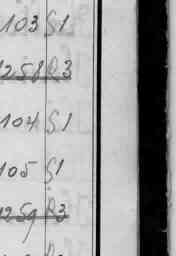 103 S1
1258 R3
104 S1
105 S1
1259 R3